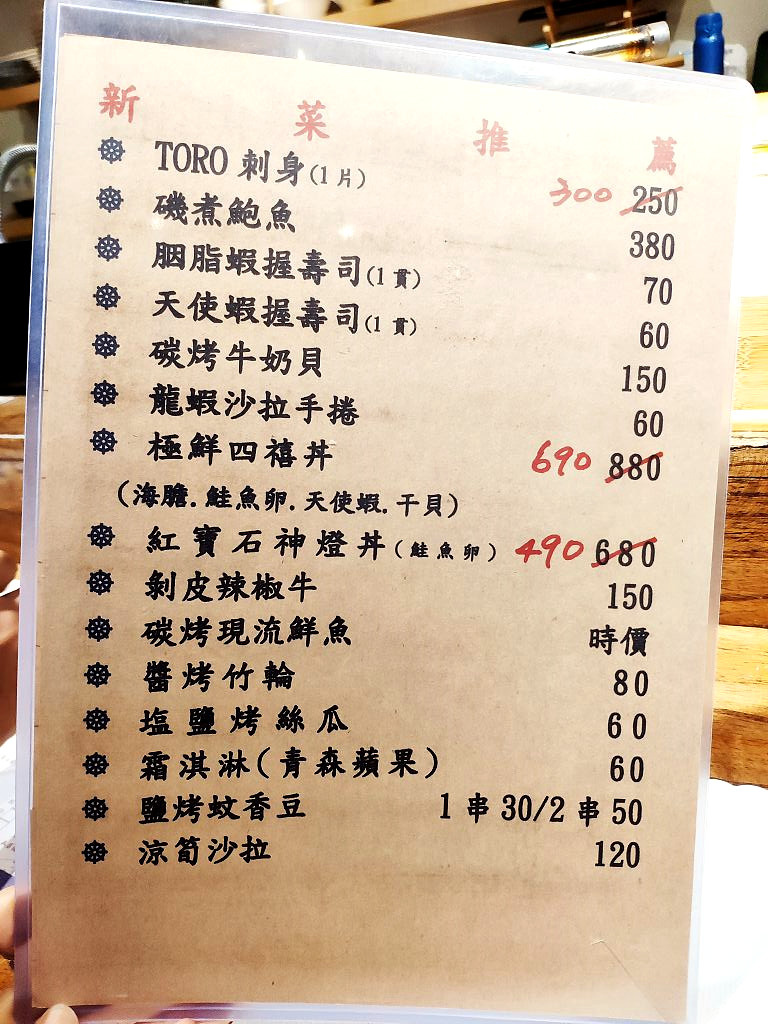 新菜推薦
TORO 刺身(1 片) 300 250
磯煮鮑魚 380
胭脂蝦握壽司(1 貫) 70
天使蝦握壽司(1 貫) 60
碳烤牛奶貝 150
龍蝦沙拉手捲 60
極鮮四禧丼 690 880
(海膽.鮭魚卵.天使蝦.干貝)
紅寶石神燈丼(鮭魚卵) 490 680
剝皮辣椒牛 150
碳烤現流鮮魚 時價
醬烤竹輪 80
塩鹽烤絲瓜 60
霜淇淋(青森蘋果) 60
鹽烤蚊香豆 1 串 30/2 串 50
涼筍沙拉 120